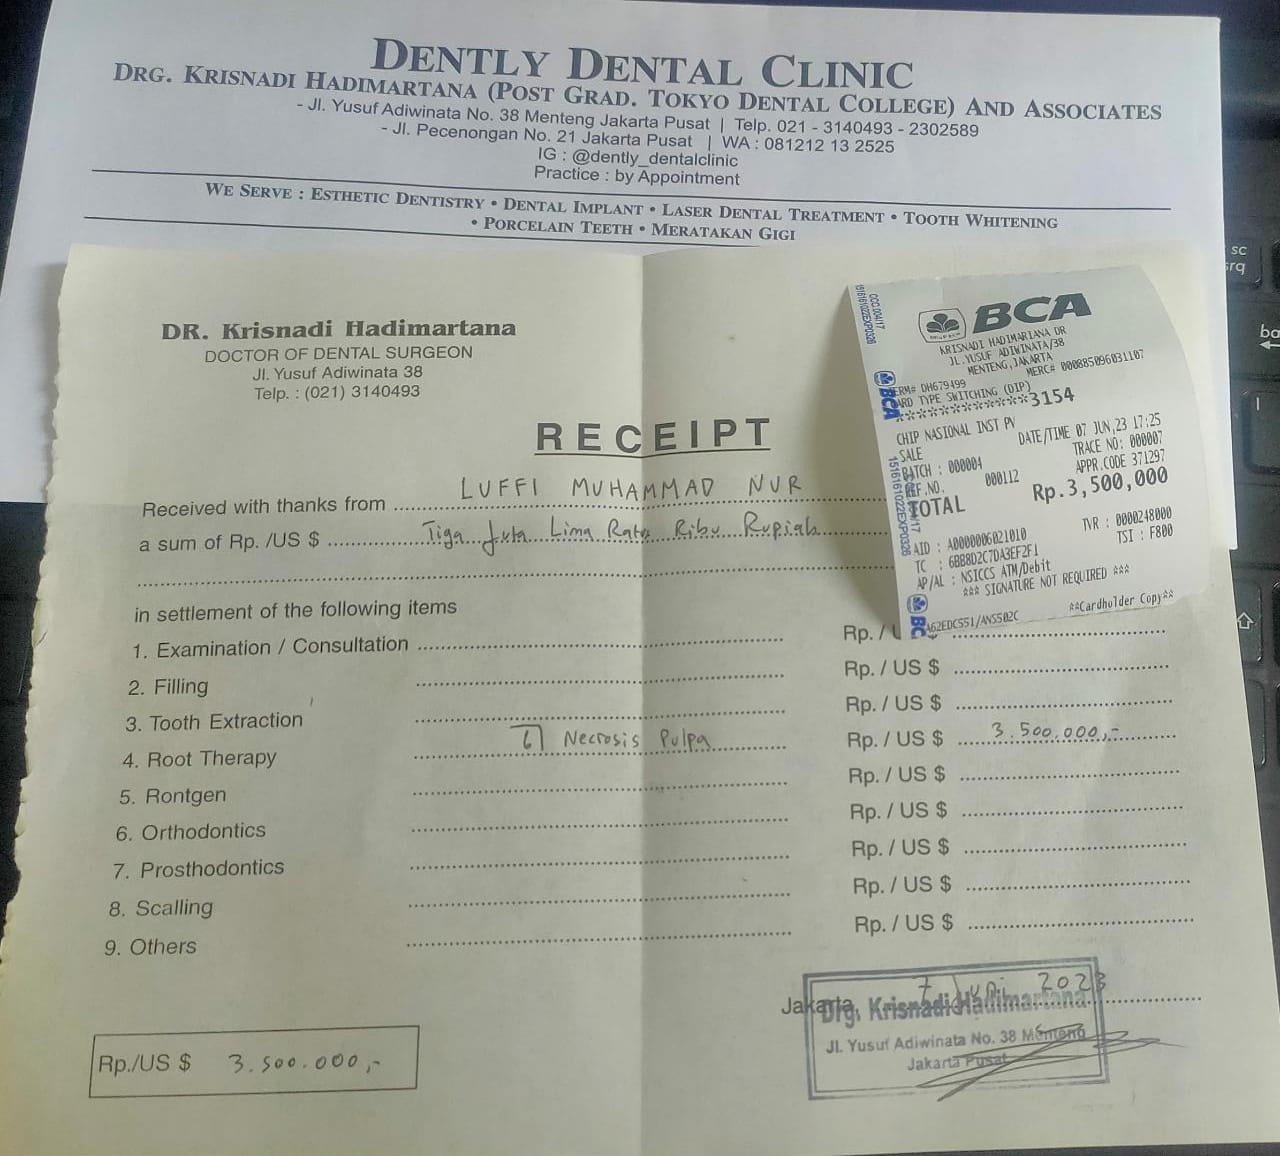 DENTLY DENTAL CLINIC
DRG. KRISNADI HADIMARTANA (POST GRAD. TOKYO DENTAL COLLEGE) AND ASSOCIATES
- Jl. Yusuf Adiwinata No. 38 Menteng Jakarta Pusat | Telp. 021 - 3140493 - 2302589
- Jl. Pecenongan No. 21 Jakarta Pusat | WA : 081212 13 2525
IG : @dently_dentalclinic
Practice : by Appointment
WE SERVE : ESTHETIC DENTISTRY • DENTAL IMPLANT • LASER DENTAL TREATMENT • TOOTH WHITENING
• PORCELAIN TEETH • MERATAKAN GIGI
DR. Krisnadi Hadimartana
DOCTOR OF DENTAL SURGEON
Jl. Yusuf Adiwinata 38
Telp. : (021) 3140493
RECEIPT
Received with thanks from LUFFI MUHAMMAD NUR
a sum of Rp. /US $ Tiga Juta Lima Ratus Ribu Rupiah
in settlement of the following items
1. Examination / Consultation Rp. / U
2. Filling Rp. / US $
3. Tooth Extraction Rp. / US $
4. Root Therapy 6 Necrosis Pulpa Rp. / US $ 3.500.000,-
5. Rontgen Rp. / US $
6. Orthodontics Rp. / US $
7. Prosthodontics Rp. / US $
8. Scalling Rp. / US $
9. Others Rp. / US $
Jakarta, 7 Juni 2023
Drg. Krisnadi Hadimartana
Jl. Yusuf Adiwinata No. 38 Menteng
Jakarta Pusat
Rp./US $ 3.500.000,-
BCA
KRISNADI HADIMARTANA DR
JL.YUSUF ADIWINATA/38
MENTENG,JAKARTA
ERM# DH679499 MERC# 000885096031107
ARD TYPE SWITCHING (DIP)
************3154
CHIP NASIONAL INST PV
SALE DATE/TIME 07 JUN,23 17:25
BATCH : 000004 TRACE NO: 000007
REF.NO. 000112 APPR.CODE 371297
TOTAL Rp.3,500,000
AID : A0000006021010 TVR : 0000248000
TC : 6BB8D2C7DA3EF2F1 TSI : F800
AP/AL : NSICCS ATM/Debit
*** SIGNATURE NOT REQUIRED ***
**Cardholder Copy**
BCA